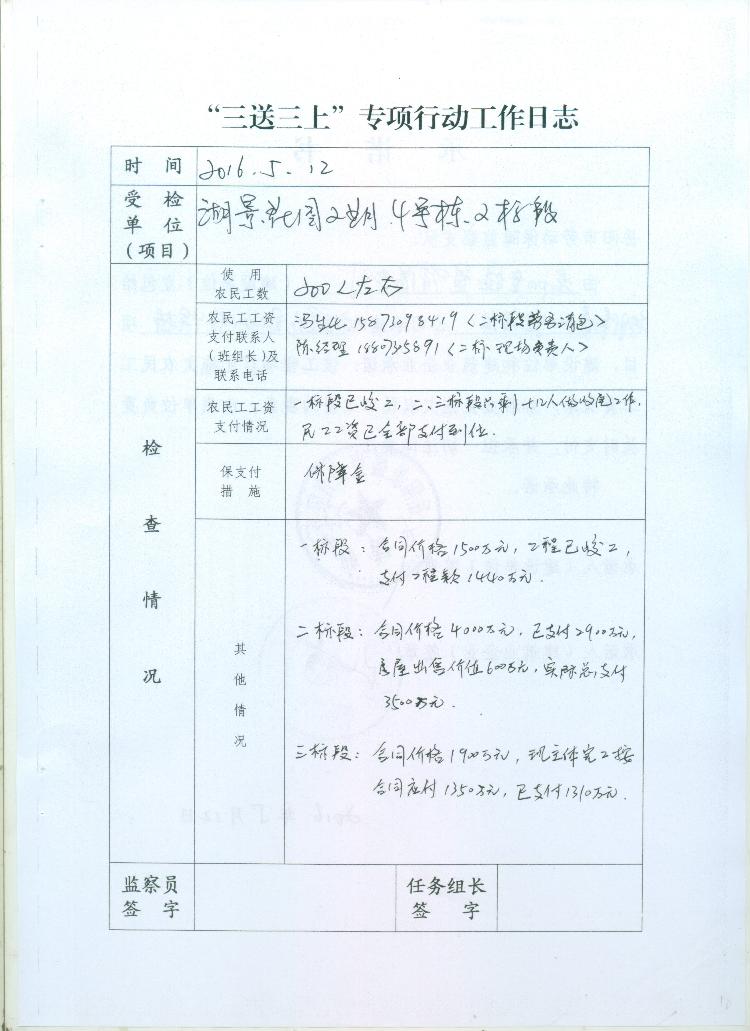 “三送三上”专项行动工作日志
时 间 2016.5.12
受 检
单 位
(项目)
湖景花园2期4号栋、2标段
使 用
农民工数
200人左右
农民工工资
支付联系人
(班组长)及
联系电话
(二标段劳务清包)
陈经理 (二标现场负责人)
农民工工资
支付情况
一标段已竣工,二、三标段只剩十几人做收尾工作,
民工工资已全部支付到位.
保支付
措 施
保障金
检 查 情 况
其 他 情 况
一标段:合同价格1500万元,工程已竣工,
支付工程款1440万元.
二标段:合同价格4000万元,已支付2900万元,
房屋出售价值600万元,实际总支付
3500万元.
三标段:合同价格1900万元,现主体完工按
合同应付1350万元,已支付1310万元.
监察员
签 字
任务组长
签 字